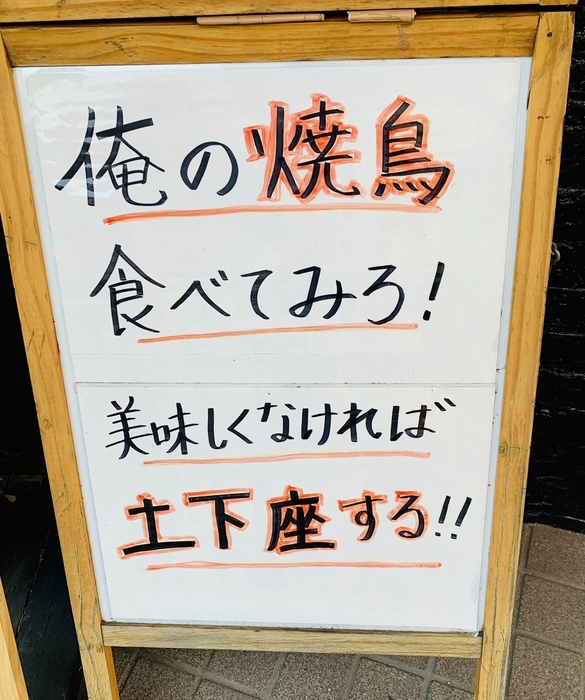 俺の焼鳥
食べてみろ!
美味しくなければ
土下座する!!